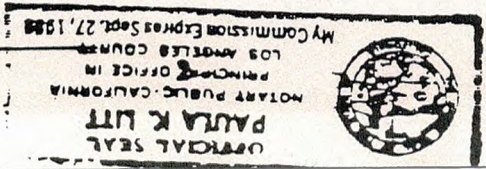 OFFICIAL SEAL
PAULA K LITT
NOTARY PUBLIC - CALIFORNIA
PRINCIPAL OFFICE IN
LOS ANGELES COUNTY
My Commission Expires Sept. 27, 1988